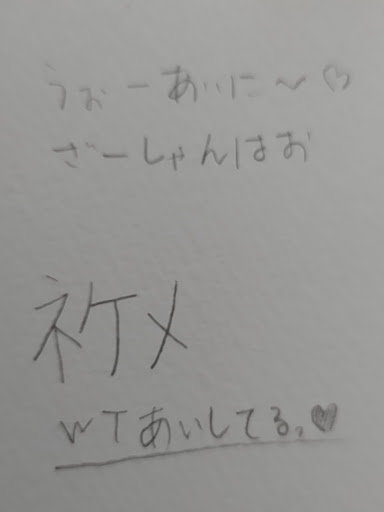 うぉーあいに〜♡
ざーしゃんはお
ネケメ
WTあいしてる。♥